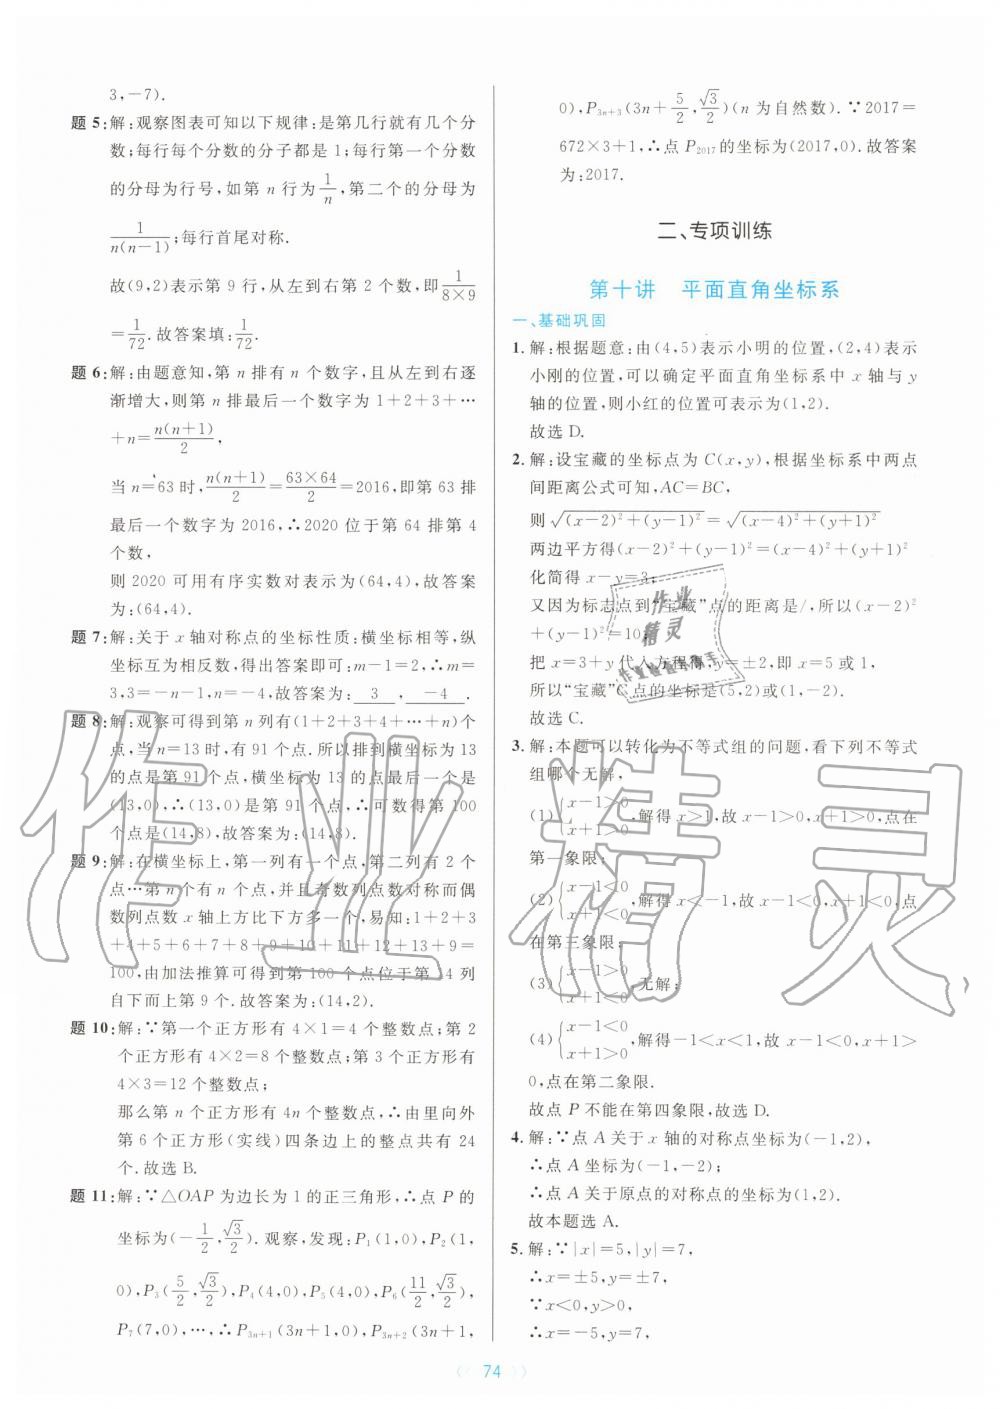 3,-7).
题 5:解:观察图表可知以下规律:是第几行就有几个分
数;每行每个分数的分子都是 1;每行第一个分数
的分母为行号,如第 n 行为1/n,第二个的分母为
1/n(n-1);每行首尾对称.
故(9,2)表示第 9 行,从左到右第 2 个数,即1/8×9
=1/72.故答案填:1/72.
题 6:解:由题意知,第 n 排有 n 个数字,且从左到右逐
渐增大,则第 n 排最后一个数字为 1+2+3+…
+n=n(n+1)/2,
当 n=63 时,n(n+1)/2=63×64/2=2016,即第 63 排
最后一个数字为 2016,∴2020 位于第 64 排第 4
个数,
则 2020 可用有序实数对表示为(64,4),故答案
为:(64,4).
题 7:解:关于 x 轴对称点的坐标性质:横坐标相等,纵
坐标互为相反数,得出答案即可:m-1=2,∴m=
3,3=-n-1,n=-4,故答案为: 3 , -4 .
题 8:解:观察可得到第 n 列有(1+2+3+4+…+n)个
点,当 n=13 时,有 91 个点.所以排到横坐标为 13
的点是第 91 个点,横坐标为 13 的点最后一个是
(13,0),∴(13,0)是第 91 个点,∴可数得第 100
个点是(14,8),故答案为:(14,8).
题 9:解:在横坐标上,第一列有一个点,第二列有 2 个
点…第 n 个有 n 个点,并且奇数列点数对称而偶
数列点数 x 轴上方比下方多一个,易知:1+2+3
+4+5+6+7+8+9+10+11+12+13+9=
100,由加法推算可得到第 100 个点位于第 14 列
自下而上第 9 个.故答案为:(14,2).
题 10:解:∵第一个正方形有 4×1=4 个整数点;第 2
个正方形有 4×2=8 个整数点;第 3 个正方形有
4×3=12 个整数点;
那么第 n 个正方形有 4n 个整数点,∴由里向外
第 6 个正方形(实线)四条边上的整点共有 24
个.故选 B.
题 11:解:∵△OAP 为边长为 1 的正三角形,∴点 P 的
坐标为(-1/2,√3/2).观察,发现:P₁(1,0),P₂(1,
0),P₃(5/2,√3/2),P₄(4,0),P₅(4,0),P₆(11/2,√3/2),
P₇(7,0),…,∴P₃ₙ₊₁(3n+1,0),P₃ₙ₊₂(3n+1,
0),P₃ₙ₊₃(3n+5/2,√3/2)(n 为自然数).∵2017=
672×3+1,∴点 P₂₀₁₇的坐标为(2017,0).故答案
为:2017.
二、专项训练
第十讲 平面直角坐标系
一、基础巩固
1. 解:根据题意:由(4,5)表示小明的位置,(2,4)表示
小刚的位置,可以确定平面直角坐标系中 x 轴与 y
轴的位置,则小红的位置可表示为(1,2).
故选 D.
2. 解:设宝藏的坐标点为 C(x,y),根据坐标系中两点
间距离公式可知,AC=BC,
则√(x-2)²+(y-1)²=√(x-4)²+(y+1)²
两边平方得(x-2)²+(y-1)²=(x-4)²+(y+1)²
化简得 x-y=3;
又因为标志点到“宝藏”点的距离是√10,所以(x-2)²
+(y-1)²=10;
把 x=3+y 代入方程得,y=±2,即 x=5 或 1,
所以“宝藏”C 点的坐标是(5,2)或(1,-2).
故选 C.
3. 解:本题可以转化为不等式组的问题,看下列不等式
组哪个无解,
(1){x-1>0 x+1>0,解得 x>1,故 x-1>0,x+1>0,点在
第一象限;
(2){x-1<0 x+1<0,解得 x<-1,故 x-1<0,x+1<0,点
在第三象限;
(3){x-1>0 x+1<0,无解;
(4){x-1<0 x+1>0,解得-1<x<1,故 x-1<0,x+1>
0,点在第二象限.
故点 P 不能在第四象限,故选 D.
4. 解:∵点 A 关于 x 轴的对称点坐标为(-1,2),
∴点 A 坐标为(-1,-2),
∴点 A 关于原点的对称点的坐标为(1,2).
故本题选 A.
5. 解:∵|x|=5,|y|=7,
∴x=±5,y=±7,
∵x<0,y>0,
∴x=-5,y=7,
74
作业精灵